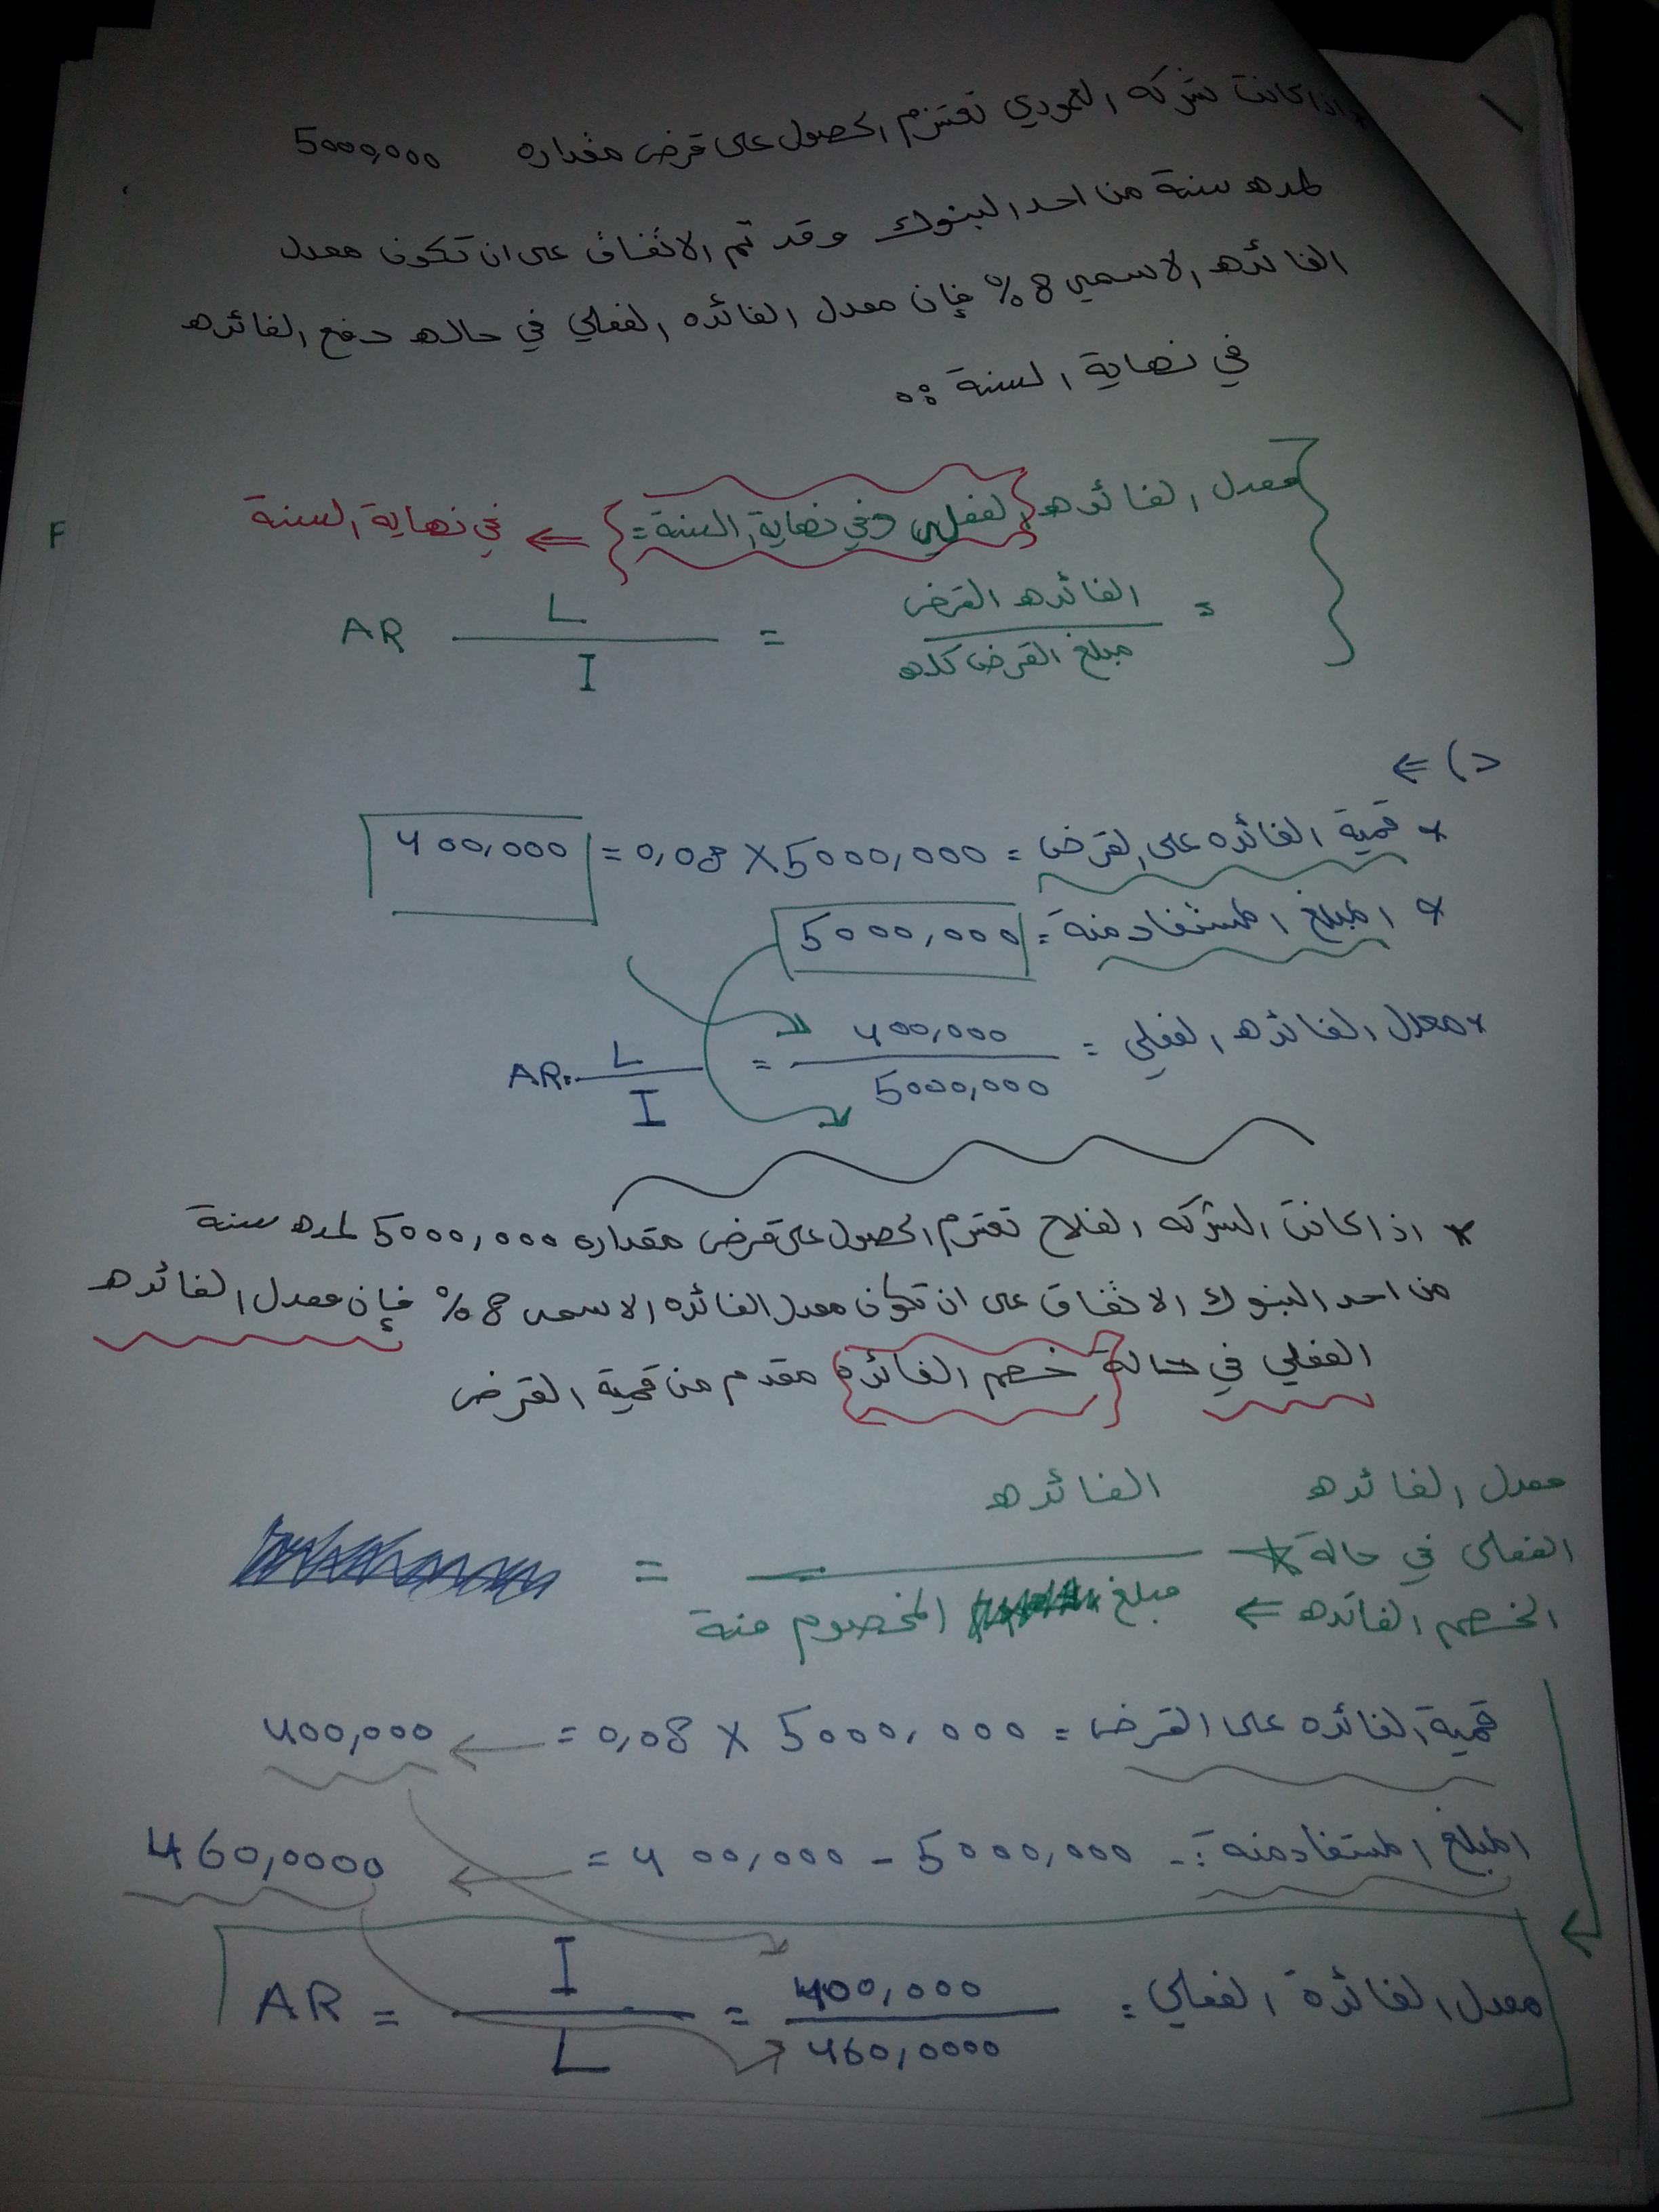 اذا كانت شركه العمودي تعتزم الحصول على قرض مقداره 5000,000
لمده سنة من احد البنوك وقد تم الاتفاق على ان تكون معدل
الفائده الاسمي 8% فإن معدل الفائده الفعلي في حاله دفع الفائده
في نهاية السنة :
معدل الفائده الفعلي وفي نهاية السنة = ⇐ في نهاية السنة
F
= الفائده القرض = L AR
مبلغ القرض كله I
د) ⇐
* قمية الفائده على القرض = 5000,000 × 0,08 = 400,000
* المبلغ المستفاد منة = 5000,000
* معدل الفائده الفعلي = 400,000 = L AR=
5000,000 I
* اذا كانت الشركه الفلاح تعتزم الحصول على قرض مقداره 5000,000 لمده سنة
من احد البنوك الاتفاق على ان تكون معدل الفائده الاسمى 8% فإن معدل الفائده
الفعلي في حالة خصم الفائده مقدم من قمية القرض
معدل الفائده الفائده
الفعلى في حالة =
الخصم الفائده ⇐ مبلغ المخصوم منة
قمية الفائده على القرض = 5000,000 × 0,08 = 400,000
المبلغ المستفاد منة :- 5000,000 - 400,000 = 460,0000
معدل الفائدة الفعلي = 400,000 = I = AR
460,0000 L